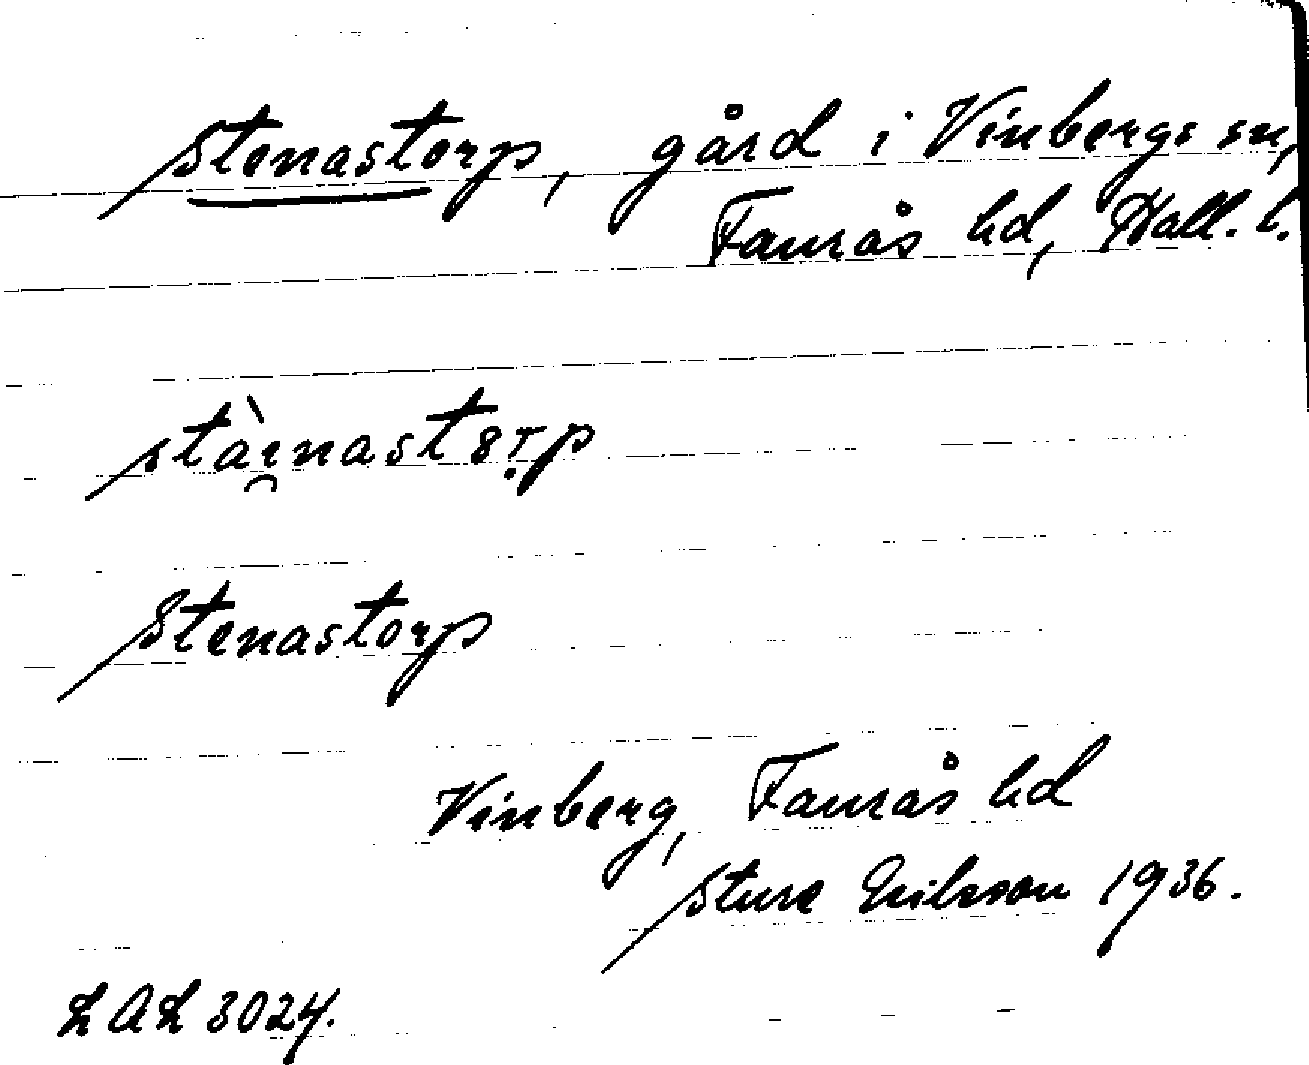 Stenastorp, gård i Vinbergs sn,
Faurås hd, Hall. l.
Stenastorp
Vinberg, Faurås hd
Sture Eriksson 1936.
LAL 3024.